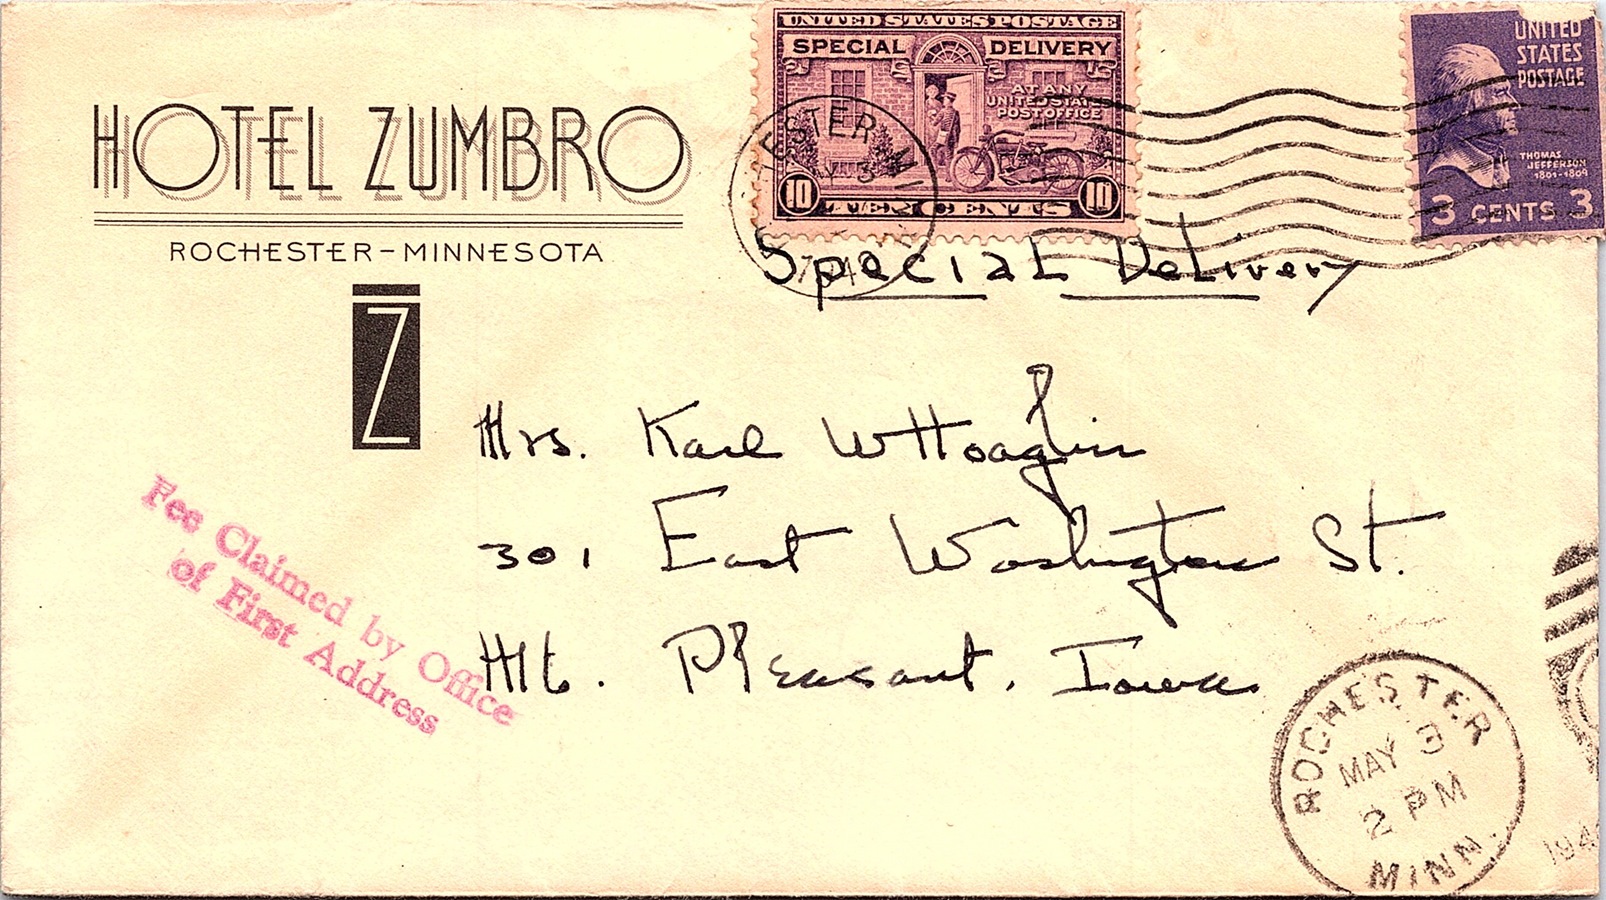 HOTEL ZUMBRO
ROCHESTER-MINNESOTA
Z
UNITED STATES POSTAGE
SPECIAL DELIVERY
AT ANY
UNITED STATES
POST OFFICE
10 TEN CENTS 10
UNITED
STATES
POSTAGE
THOMAS
JEFFERSON
1801-1809
3 CENTS 3
Special Delivery
Mrs. Karl W Hoaglin
301 East Washington St.
Mt. Pleasant, Iowa
Fee Claimed by Office
of First Address
ROCHESTER
MAY 3
2 PM
MINN.